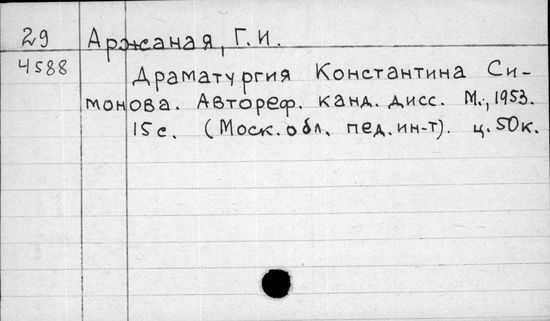 29 Аржаная, Г.И.
4588 Драматургия Константина Си-
монова. Автореф. канд. дисс. М., 1953.
15с. (Моск. обл. пед. ин-т). ц. 50к.